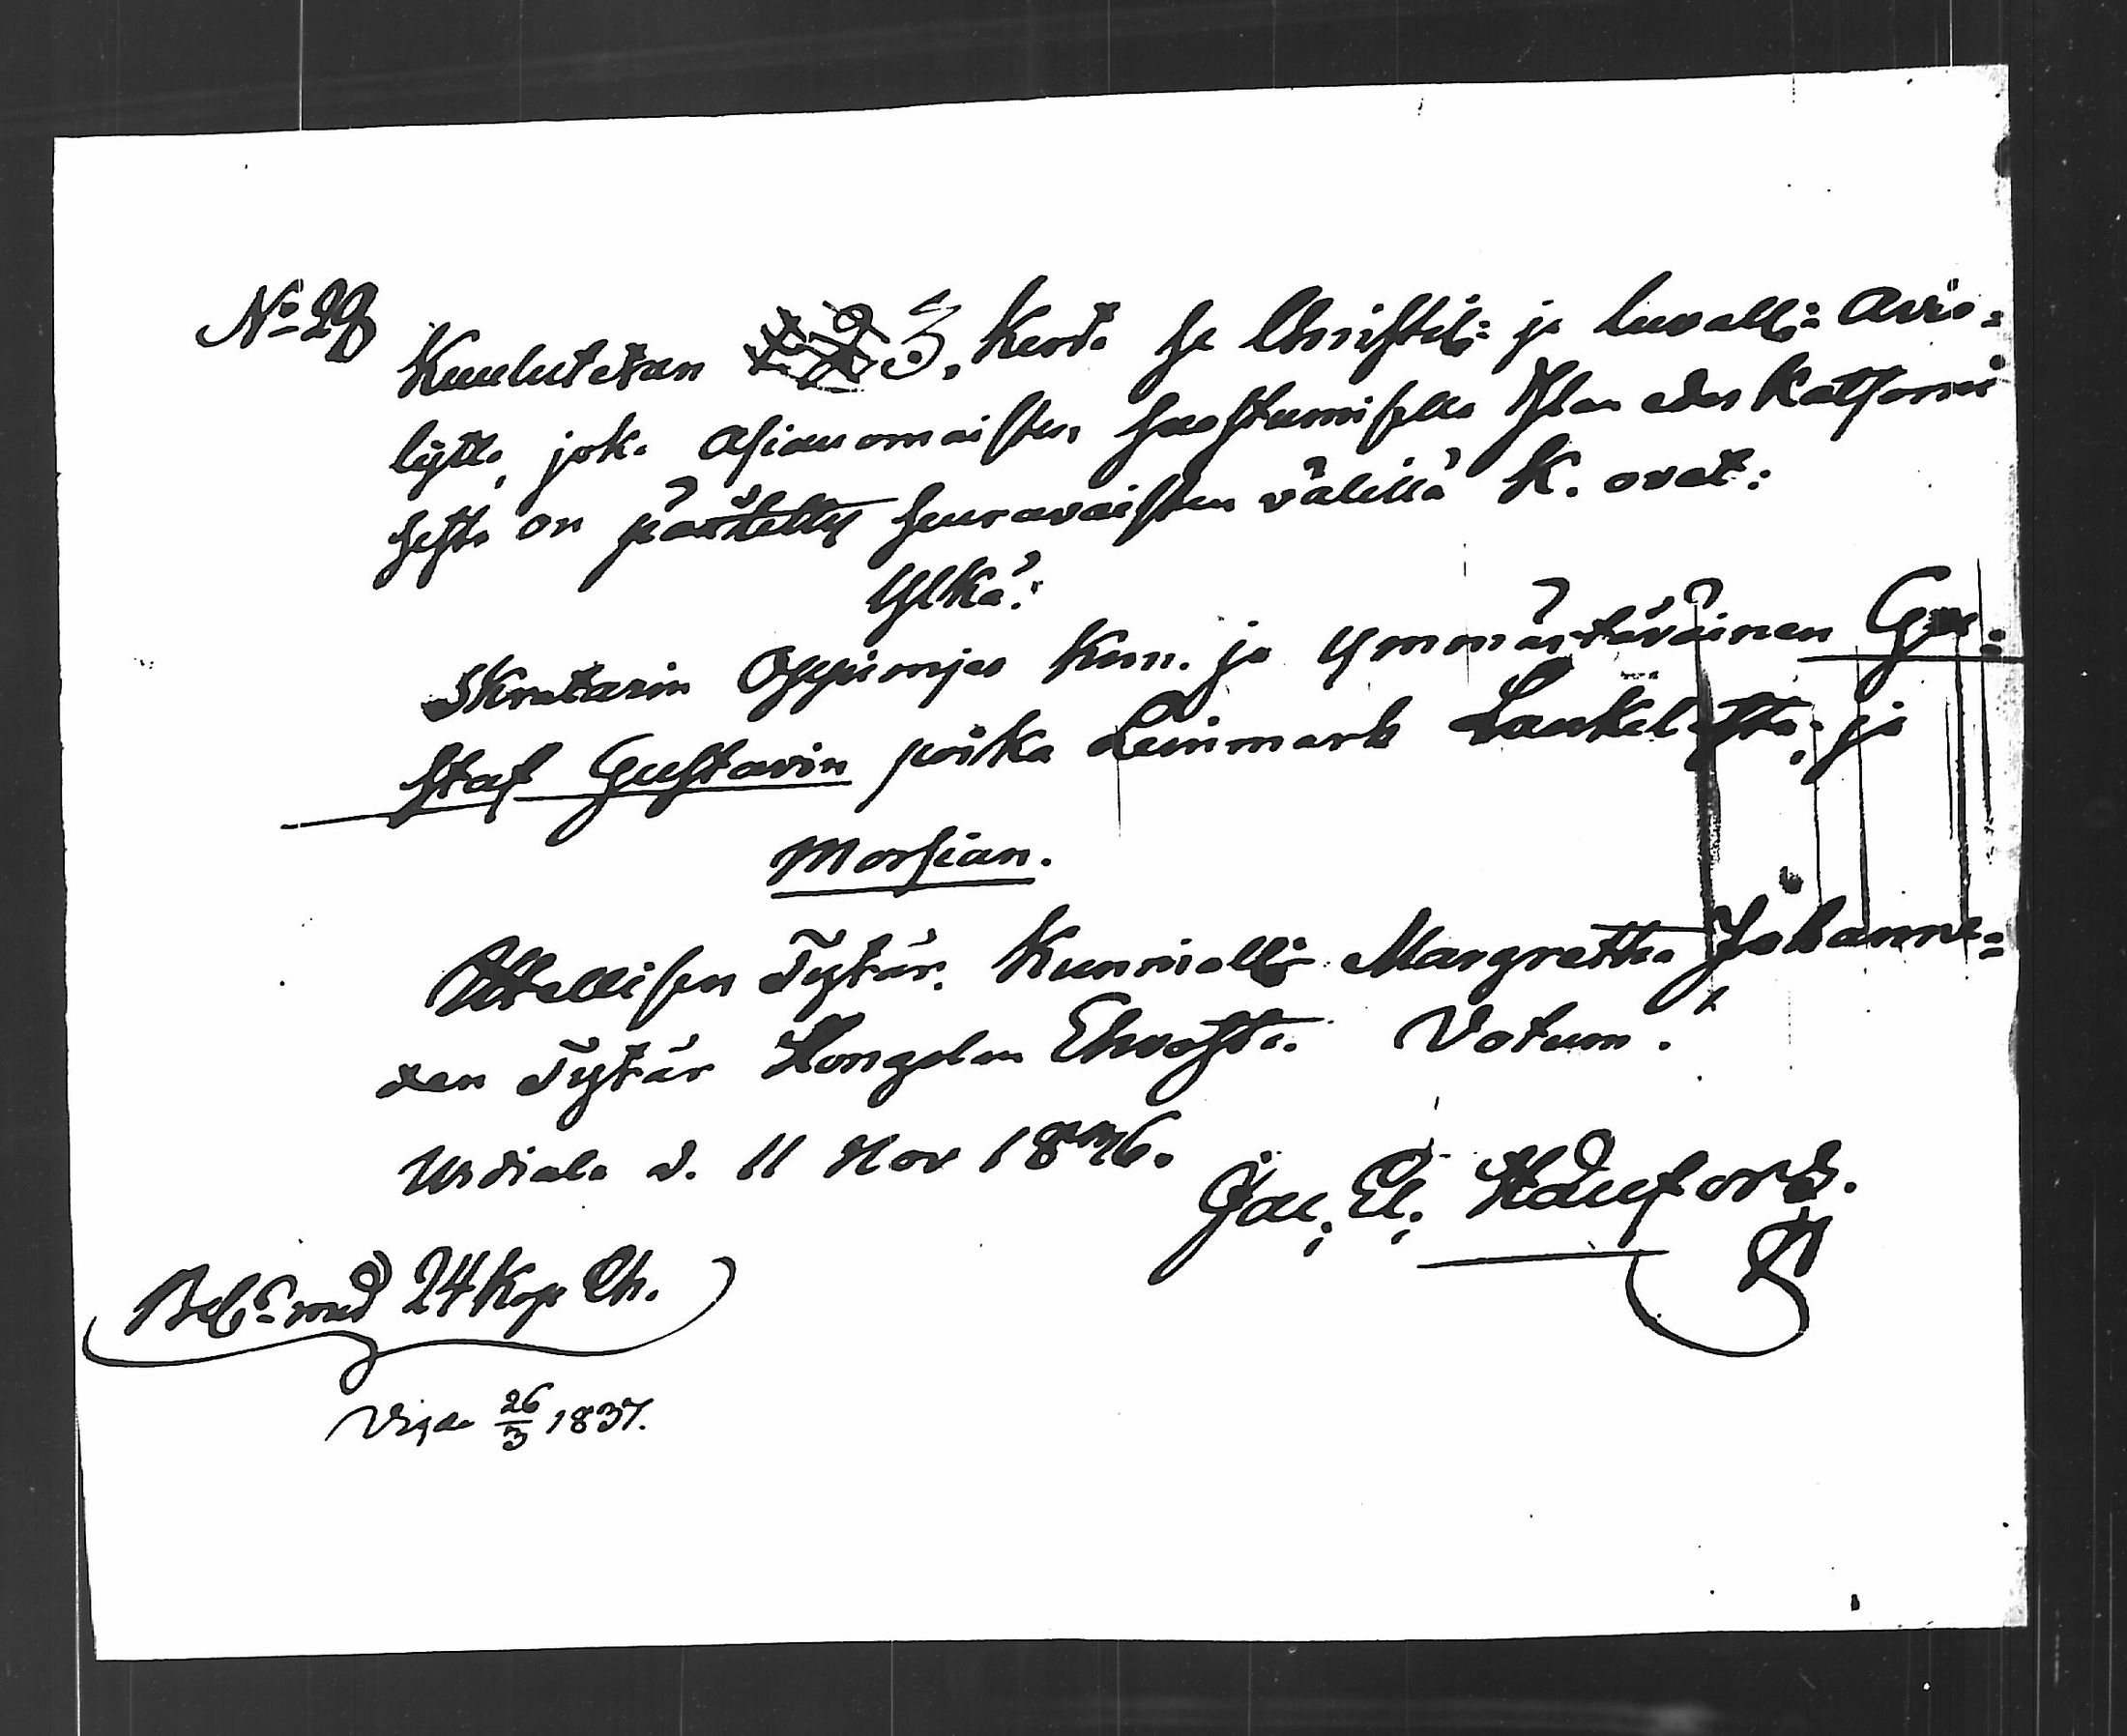 No 29
Kuulutetan 3. Kerd. se Christil: ja luvall: Avio=
lijtto, jok. Asianomaisten suostumisella Ylan eden katsomi
sesta on päätetty seuravaisten välillä K. ovat:
Ylkä:
Skrätarin Oppimjes Kun. ja ymmärtäväinen Gu=
staf Gustavin poika Leinmark Laukelasta, ja
Morsian.
Ittellisen Tytär. Kunniall: Margretha Johanne=
xen Tytär Hongolan Ehrosta. Votum.
Urdiala d. 11 Nov 1836.
Jac. El.
Bel: med 24 Kop
Vigde 26/3 1837.